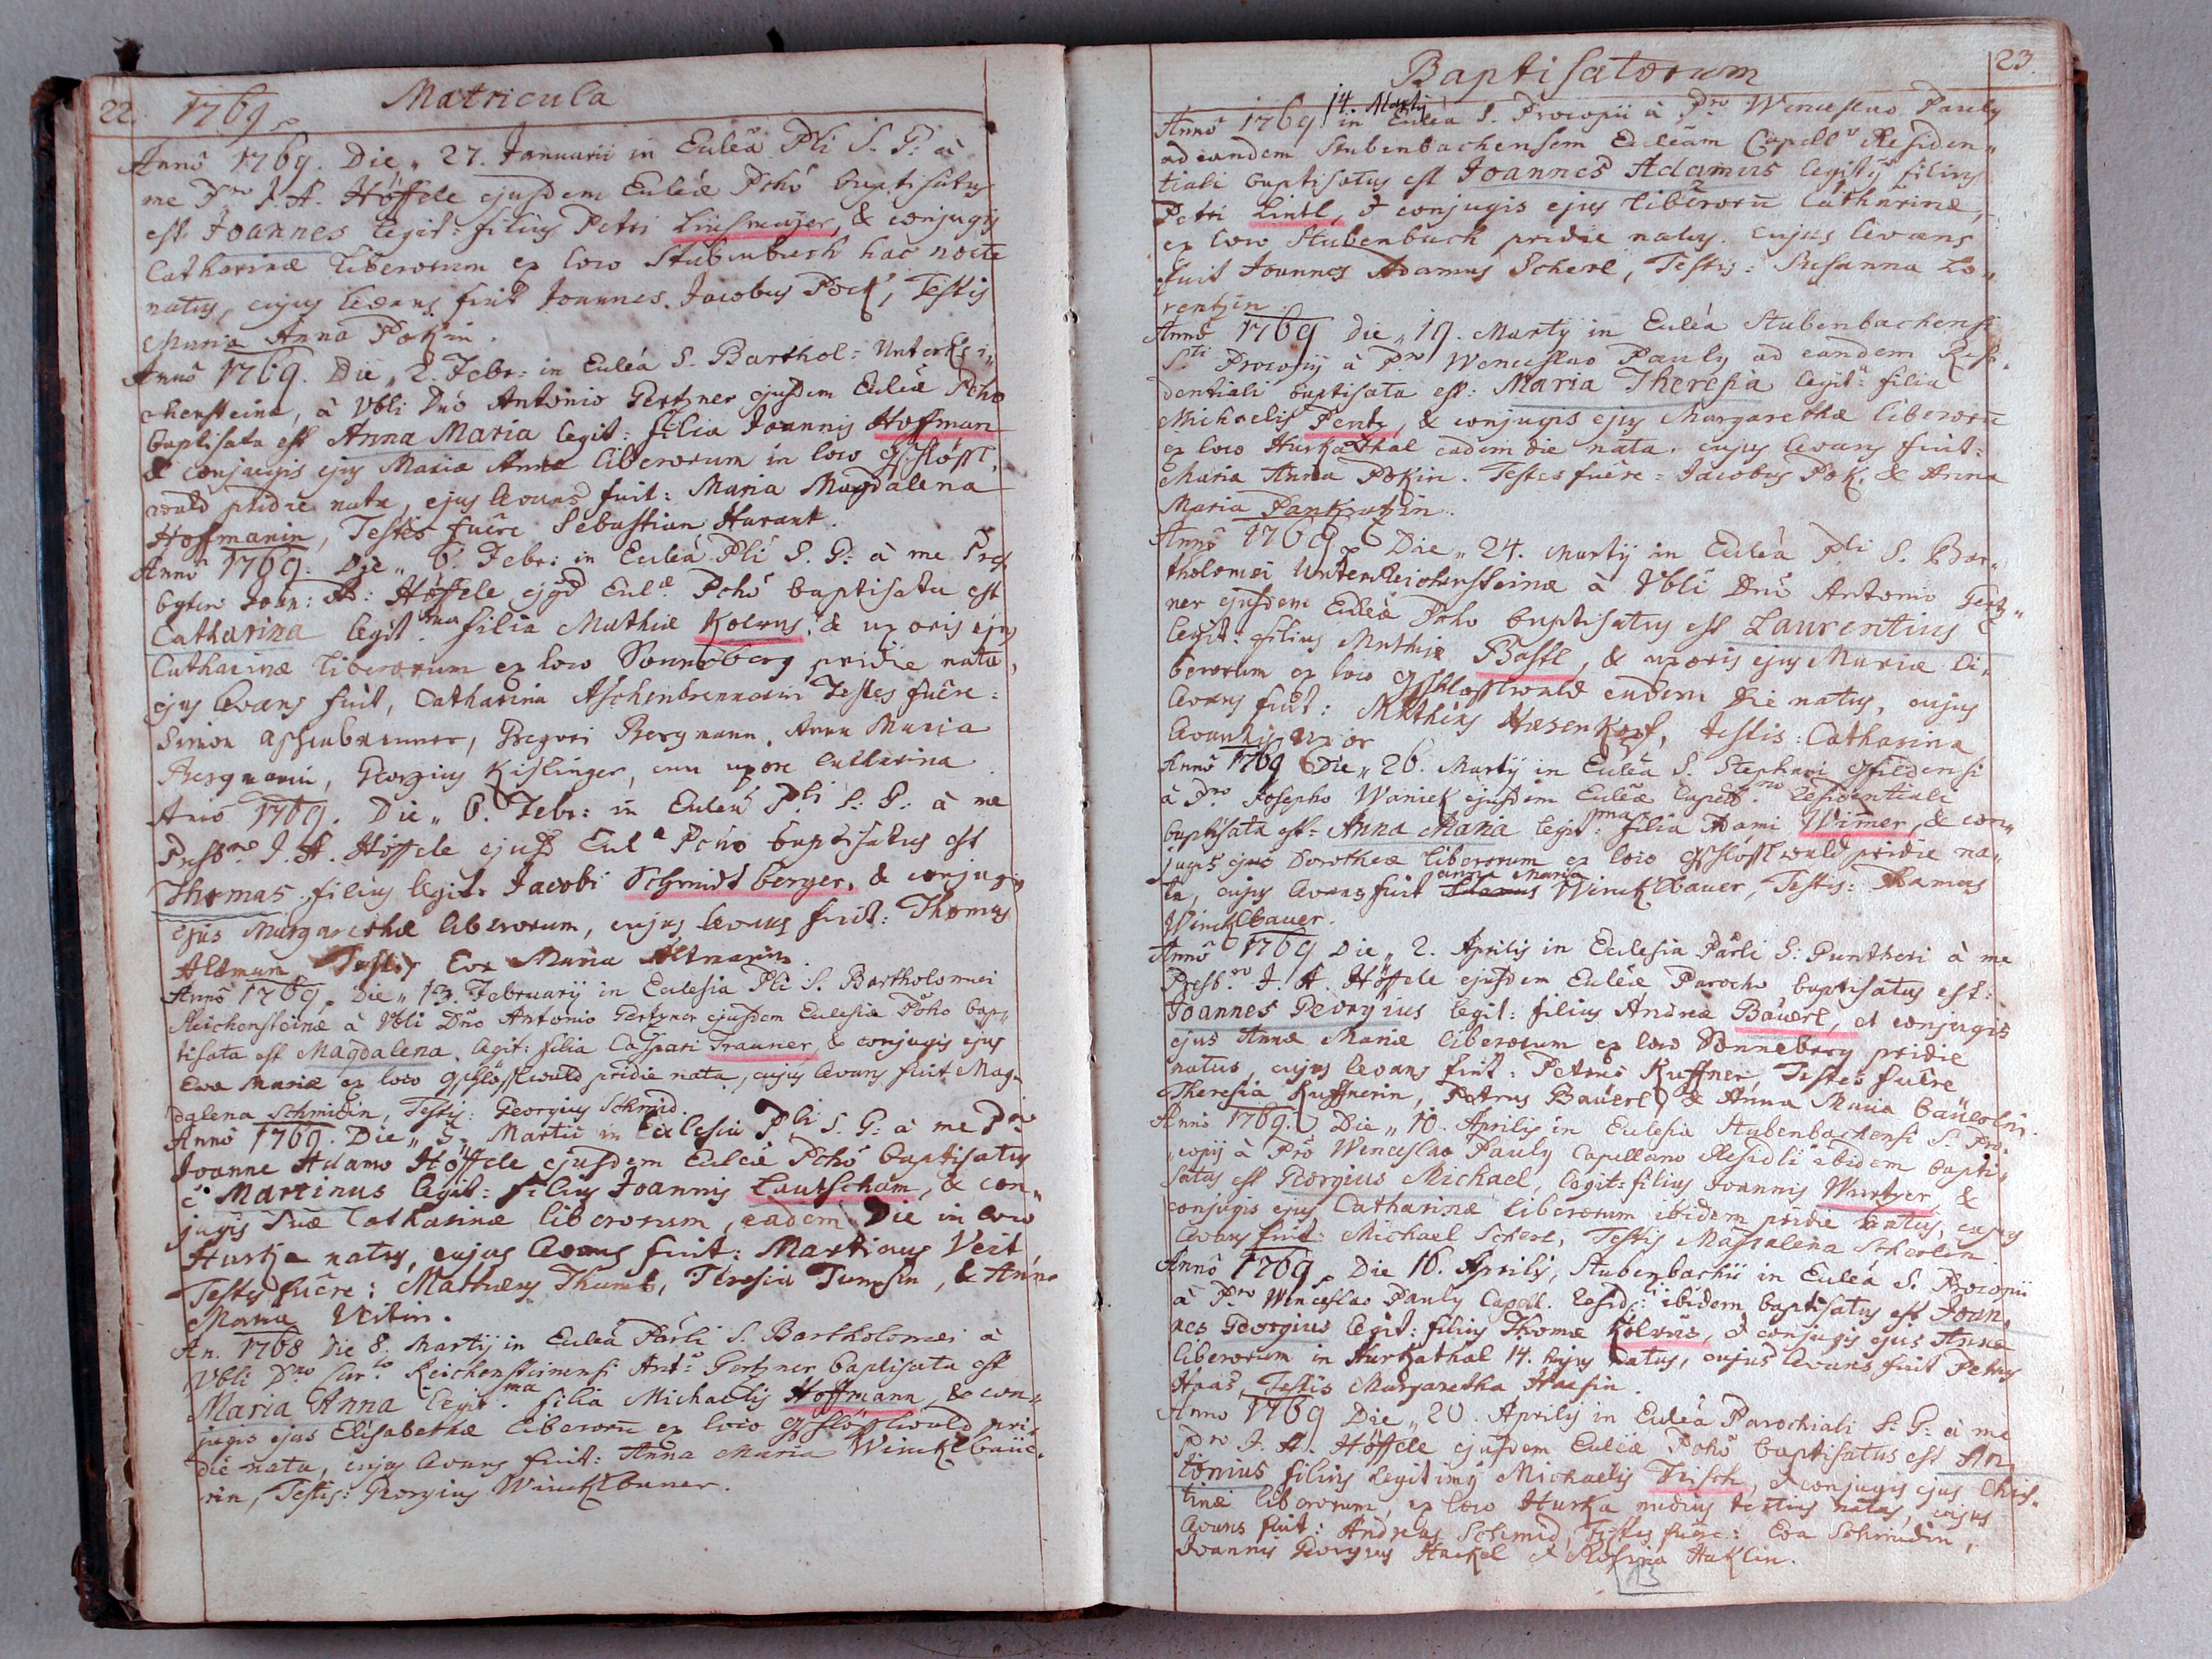 22. 1769 Matricula
Anno 1769. Die „ 27. Januarii in Ecclea Pli S. G: à
me Pro J. A. Höffele ejusdem Eccleæ Pcho baptisatus
est Joannes legit: filius Petri & conjugis
Catharinæ liberorum ex loco Stubenbach hac nocte
natus, cujus levans fuit Joannes Jacobus Pock, Testis
Maria Anna Pokin.
Anno 1769. Die „ 2. Febr: in Ecclea S. Barthol: Unterrei„
chensteinæ, à Vbli Dno Antonio Gertzner ejusdem Eccleæ Pcho
baptisata est Anna Maria legit: filia Joannis Hoffman
& conjugis ejus Mariæ Annæ liberorum in loco Gschlössl„
wald pridie nata, ejus levans fuit: Maria Magdalena
Hoffmanin, Testes fuêre Sebastian Harant.
Anno 1769. Die „ 6. Febr: in Ecclea Pli S. G: à me Pres„
bytero Joan: A: Höffele ejusd Eccl: Pcho baptisata est
Catharina legit:ma filia Mathiæ Kolrus, & uxoris ejus
Catharinæ liberorum ex loco Sonneberg pridie nata,
ejus levans fuit, Catharina Aschenbrennerin Testes fuêre:
Simon Aschenbrenner, Gregori Bergmann, Anna Maria
Bergmanin, Georgius Kislinger, cum uxore Catharina
Ano 1769. Die „ 8. Febr: in Ecclea Pli S: G: à me
Presbro J. A. Höffele ejusd Eccl: Pcho baptisatus est
Thomas filius legit: Jacobi Schmidtberger, & conjugis
ejus Margarethæ liberorum, cujus levans fuit: Thomas
Altman Testis Eva Maria Altmanin.
Anno 1769. Die „ 13. February in Ecclesia Pli S. Bartholomei
Reichensteinæ à Vbli Dño Antonio Gertzner ejusdem Ecclesiæ Pcho bap„
tisata est Magdalena, legit: filia Caspari Trauner, & conjugis ejus
Evæ Mariæ ex loco Gschlösslwald pridie nata, cujus levans fuit Mag„
dalena Schmidin, Testis: Georgius Schmid.
Anno 1769. Die „ 5. Martii in Ecclesia Pli S. G: à me Pro
Joanne Adamo Höffele ejusdem Eccleæ Pcho baptisatus
ê Martinus legit: filius Joannis Lautscham, & con„
jugis suæ Catharinæ liberorum, eadem Die in loco
Hurka natus, cujus levans fuit: Martinus Veit,
Testes fuêre: Mathæus Thums, Teresia Tumsin, & Anna
Maria Veitin.
An. 1768 Die 8. Martij in Ecclea Parli S. Bartholomei à
Vbli Dno Cur:to Reichensteinensi Ant:o Gertzner baptisata est
Maria Anna legit:ma filia Michaelis Hoffmann, & con„
jugis ejus Elisabethæ liberorũ ex loco Gschlösslwald pri„
die nata, cujus levans fuit: Anna Maria Wincklbaüe„
rin, Testis: Georgius Wincklbauer.
Baptisatorum 23.
14. Martij
Anno 1769 in Ecclea S. Procopii à Pro Wenceslao Pauly
ad eandem Stubenbachensem Eccleam Capello Residen„
tiali baptisatus est Joannes Adamus legitûs filius
Petri Lintl, & conjugis ejus Catharinæ, liberorũ
ex loco Stubenbach pridie natus. cujus levans
fuit Joannes Adamus Scherl, Testis: Susanna Lo„
rentzin.
Anno 1769 Die „ 19. Martij in Ecclea Stubenbachensi
Sti Procopij à Pro Wenceslao Pauly ad eandem Resi„
dentiali baptisata est: Maria Theresia legit:a filia
Michaelis Pentz, & conjugis ejus Margarethæ liberorũ
ex loco Hurkathal eadem die nata. cujus levans fuit:
Maria Anna Pokin. Testes fuêre: Jacobus Pok, & Anna
Maria Pankratzin.
Anno 1769 Die „ 24. Martij in Ecclea Pli S. Bar„
tholomei Unterreichensteinæ à Vbli Dnô Antonio Gertz„
ner ejusdem Eccleæ Pcho baptisatus est Laurentius
legit: filius Mathiæ Bastl, & uxoris ejus Mariæ li„
berorum ex loco Gschlosslwald eadem die natus, cujus
levans fuit: Mathias Hasenkopf, Testis: Catharina
levantis uxor
Anno 1769 Die „ 26. Martij in Ecclea S. Stephani Gfildensi
à Pro Josepho Waniek ejusdem Eccleæ Capello Residentiali
baptisata est: Anna Maria legit:ma filia Adami Wimer, & con„
jugis ejus Dorotheæ liberorum ex loco Gschlösslwald pridie na„
ta, cujus levans fuit Anna Maria Wincklbauer, Testis: Adamus
Wincklbauer.
Anno 1769 Die „ 2. Aprilis in Ecclesia Parli S: Guntheri à me
Presb:ro J. A. Höffele ejusdem Eccleæ Parocho baptisatus est:
Joannes Georgius legit: filius Andreæ Baüerl, et conjugis
ejus Annæ Mariæ liberorum ex loco Sonneberg pridie
natus, cujus levans fuit: Petrus Kuffner, Testes fuêre
Theresia Kuffnerin, Petrus Baüerl, & Anna Maria Baüerlin.
Anno 1769. Die „ 10. Aprilis in Ecclesia Stubenbachensi S. Pro„
copij à Pro Wenceslao Pauly Capellano Residli ibidem bapti„
satus est Georgius Michael, legit: filius Joannis Wurtzer, &
conjugis ejus Catharinæ liberorum ibidem pridie natus, cujus
levans fuit: Michael Scherl, Testis Magdalena Scherlin.
Anno 1769. Die 16. Aprilis, Stubenbachii in Ecclea S. Procopii
à Pro Winceslao Pauly Capell. Resid:li ibidem baptisatus est Joan„
nes Georgius legit: filius Thomæ Kolrus, & conjugis ejus Annæ
liberorum in Hurkathal 14. hujus natus, cujus levans fuit Petrus
Haas, Testis Margaretha Haasin.
Anno 1769 Die „ 20. Aprilis in Ecclea Parochiali S: G: à me
Pro J. A. Höffele ejusdem Eccleæ Pcho baptisatus est An„
tonius filius legitimus Michaelis Frisch, & conjugis ejus Chris„
tinæ liberorum, ex loco Hurka nudius tertius natus, cujus
levans fuit: Andreas Schmid, Testes fuêre: Eva Schmidin,
Joannis Georgius Hackel & Rosina Haklin.
13